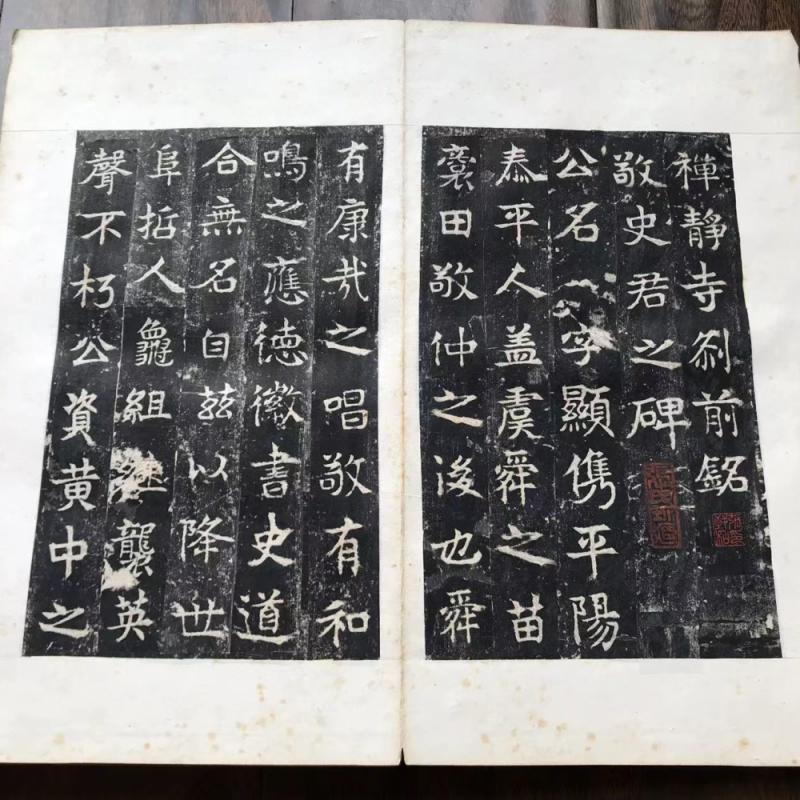 禪靜寺刹前銘
敬史君之碑
公名字顯儁平陽
泰平人盖虞舜之苗
裔田敬仲之後也舜
有康哉之唱敬有和
鳴之應德徽書史道
合無名自兹以降世
阜哲人龜組継襲英
聲不朽公資黄中之